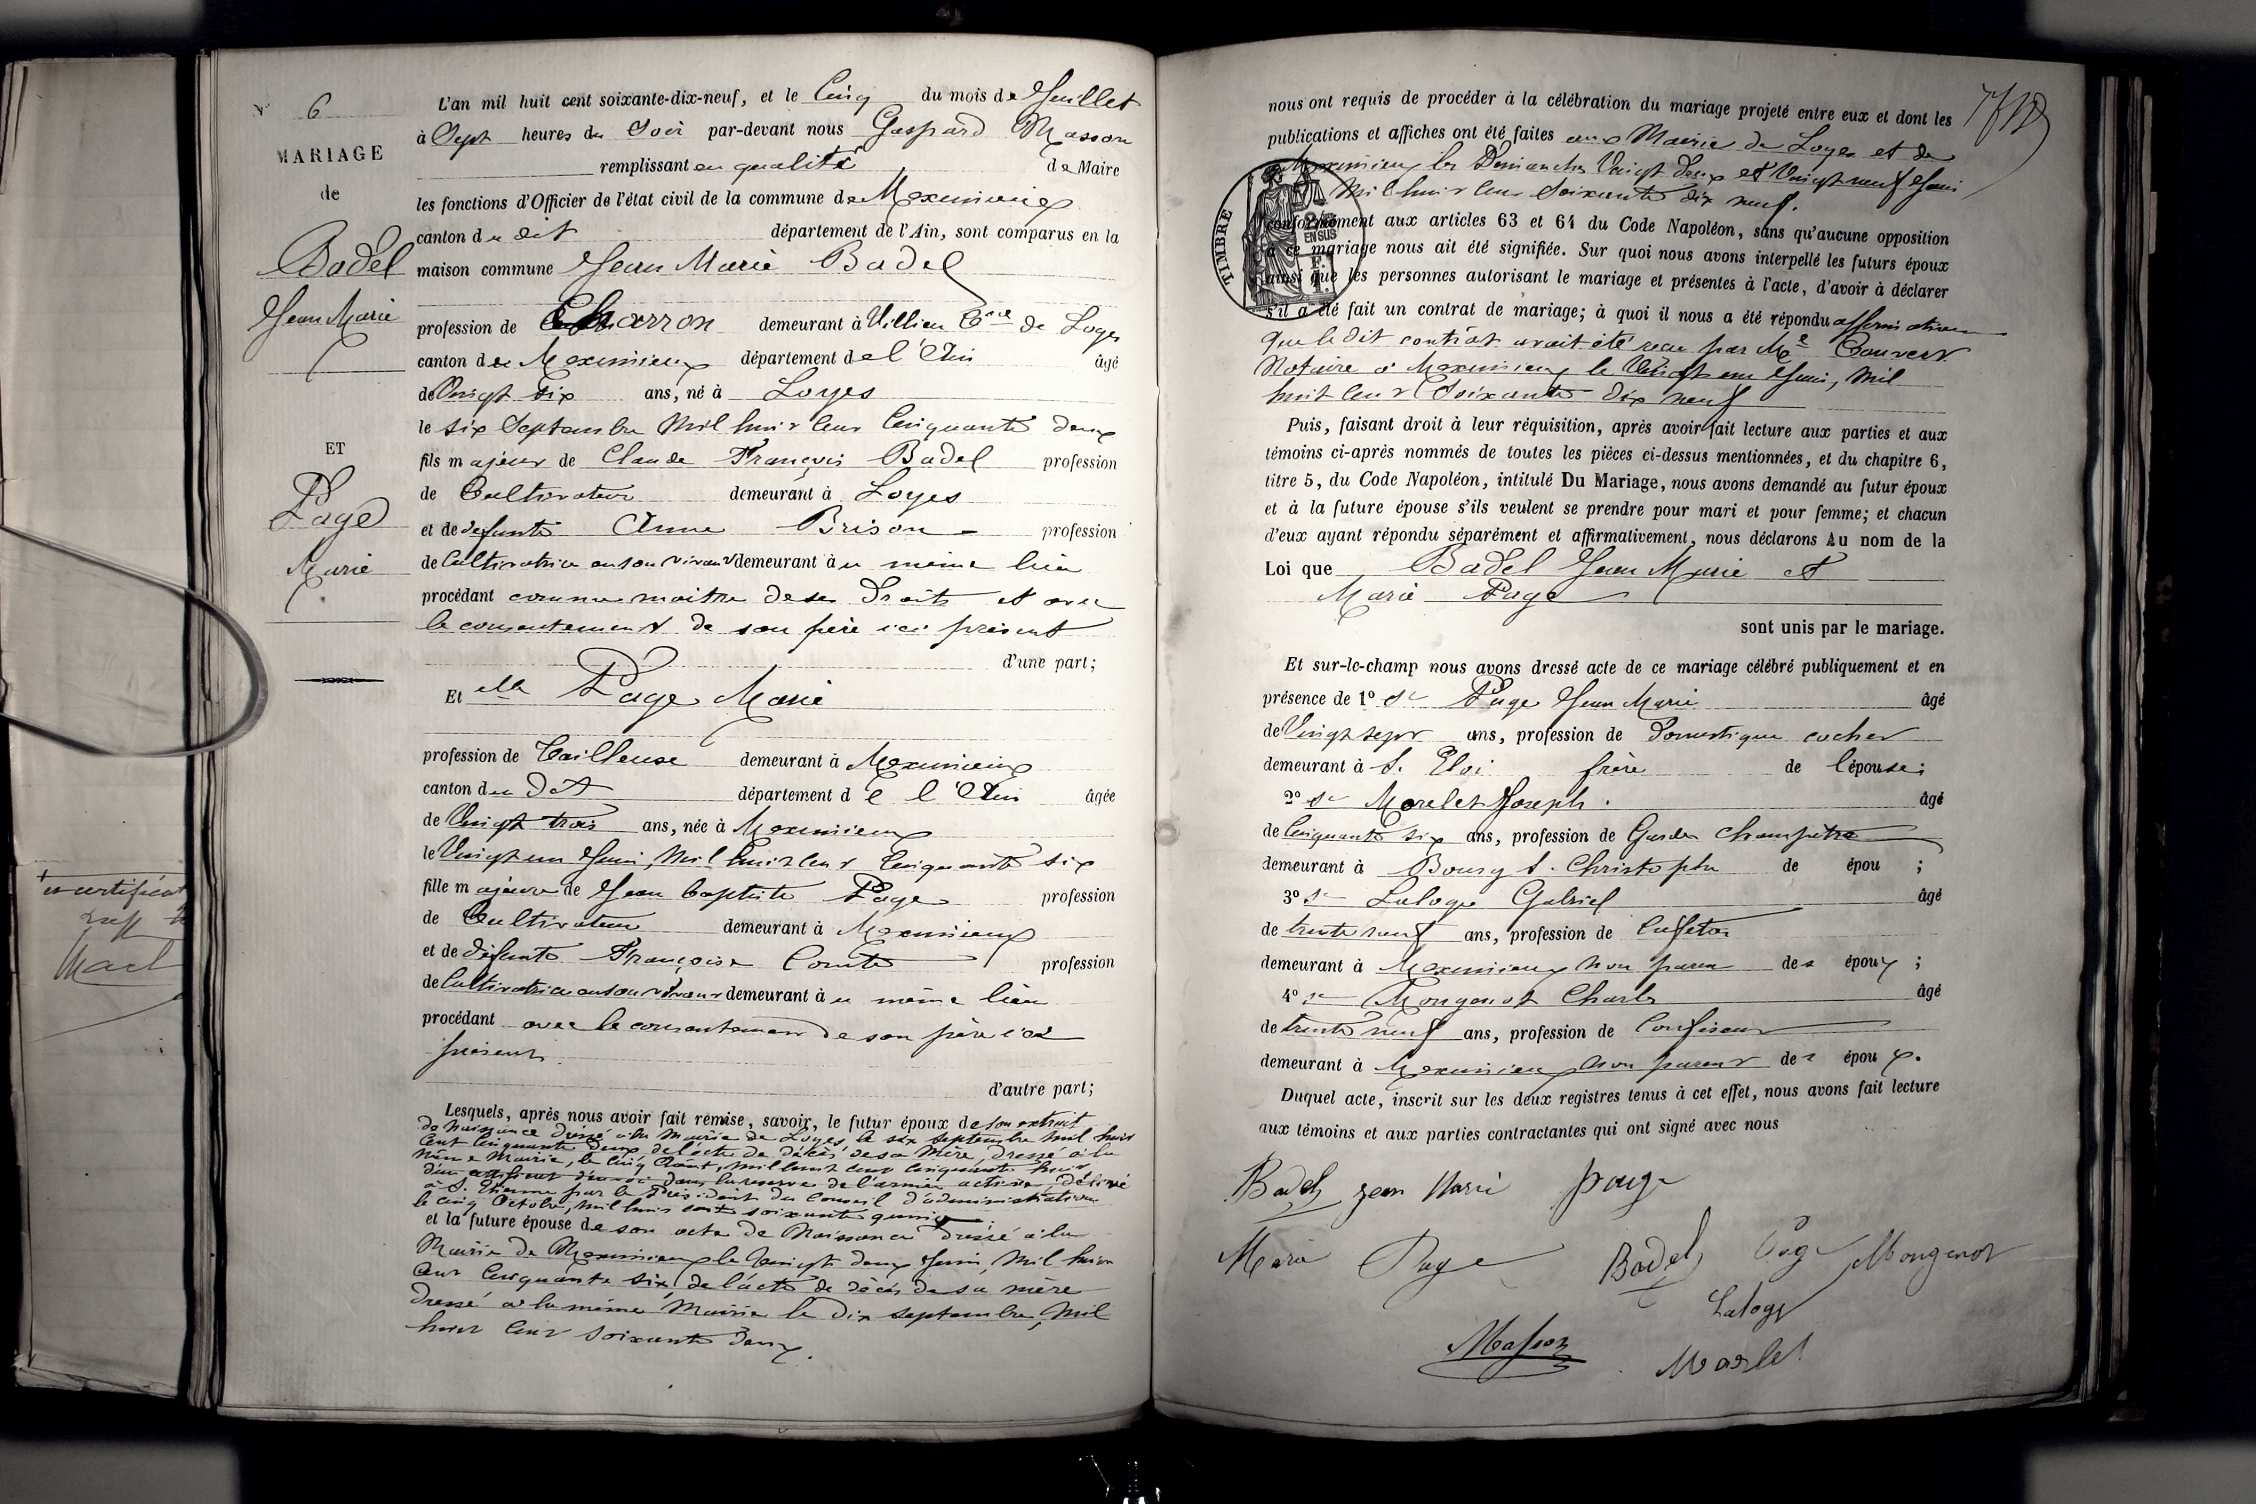 N° 6
MARIAGE
de
Badel
Jean Marie
ET
Page
Marie
L'an mil huit cent soixante-dix-neuf, et le Cinq du mois de Juillet
à Sept heures du Soir par-devant nous Gaspard Masson
remplissant en qualité de Maire
les fonctions d'Officier de l'état civil de la commune de Meximieux
canton du dit département de l'Ain, sont comparus en la
maison commune Jean Marie Badel
profession de Charron demeurant à Villieu Cne de Loyes
canton de Meximieux département de l'Ain âgé
de Vingt Six ans, né à Loyes
le six Septembre Mil huit Cent Cinquante deux
fils majeur de Claude François Badel profession
de Cultivateur demeurant à Loyes
et de défunte Anne Brison profession
de Cultivatrice en son vivant demeurant au même lieu
procédant comme maitre de ses Droits et avec
le consentement de son père ici présent
d'une part;
Et elle Page Marie
profession de Tailleuse demeurant à Meximieux
canton du dit département de l'Ain âgée
de Vingt trois ans, née à Meximieux
le Vingt un Juin, Mil huit Cent Cinquante six
fille majeure de Jean Baptiste Page profession
de Cultivateur demeurant à Meximieux
et de défunte Françoise Comte profession
de Cultivatrice en son vivant demeurant au même lieu
procédant avec le consentement de son père ici
présent
d'autre part;
Lesquels, après nous avoir fait remise, savoir, le futur époux de son extrait
de Naissance dressé à la Mairie de Loyes, le six septembre mil huit
Cent Cinquante deux, de l'acte de décès de sa mère, dressé à la
même Mairie, le Cinq Août, mil huit cent cinquante huit
d'un certificat d'envoi dans la reserve de l'armée active, délivré
à St. Etienne par le Président du Conseil d'administration
le cinq Octobre, mil huit cent soixante quinze
et la future épouse de son acte de Naissance dressé à la
Mairie de Meximieux le Vingt deux Juin, Mil huit
Cent Cinquante six, de l'acte de décès de sa mère
dressé à la même Mairie le dix septembre, Mil
huit Cent soixante deux.
nous ont requis de procéder à la célébration du mariage projeté entre eux et dont les
publications et affiches ont été faites aux Mairie de Loyes et de
Meximieux les Dimanches Vingt deux et Vingt neuf Juin
Mil huit Cent Soixante dix neuf.
conformément aux articles 63 et 64 du Code Napoléon, sans qu'aucune opposition
à ce mariage nous ait été signifiée. Sur quoi nous avons interpellé les futurs époux
ainsi que les personnes autorisant le mariage et présentes à l'acte, d'avoir à déclarer
s'il a été fait un contrat de mariage; à quoi il nous a été répondu
que le dit contrat avait été reçu par Me Couvert
Notaire à Meximieux le Vingt un Juin, Mil
huit Cent Soixante dix neuf
TIMBRE
EN SUS
Puis, faisant droit à leur réquisition, après avoir fait lecture aux parties et aux
témoins ci-après nommés de toutes les pièces ci-dessus mentionnées, et du chapitre 6,
titre 5, du Code Napoléon, intitulé Du Mariage, nous avons demandé au futur époux
et à la future épouse s'ils veulent se prendre pour mari et pour femme; et chacun
d'eux ayant répondu séparément et affirmativement, nous déclarons Au nom de la
Loi que Badel Jean Marie et
Marie Page
sont unis par le mariage.
Et sur-le-champ nous avons dressé acte de ce mariage célébré publiquement et en
présence de 1° Sr Page Jean Marie âgé
de Vingt sept ans, profession de Domestique cocher
demeurant à St. Eloi frère de l'épouse;
2° Sr Morelet Joseph. âgé
de Cinquante six ans, profession de Garde Champêtre
demeurant à Bourg St. Christophe de épou ;
3° Sr Laloge Gabriel âgé
de trente neuf ans, profession de Cafetier
demeurant à Meximieux non parent des époux ;
4° Sr Mongenot Charles âgé
de trente neuf ans, profession de Confiseur
demeurant à Meximieux non parent des époux.
Duquel acte, inscrit sur les deux registres tenus à cet effet, nous avons fait lecture
aux témoins et aux parties contractantes qui ont signé avec nous
Badel jean Marie page
Marie Page Badel Page Mongenot
Laloge
Masson Morelet